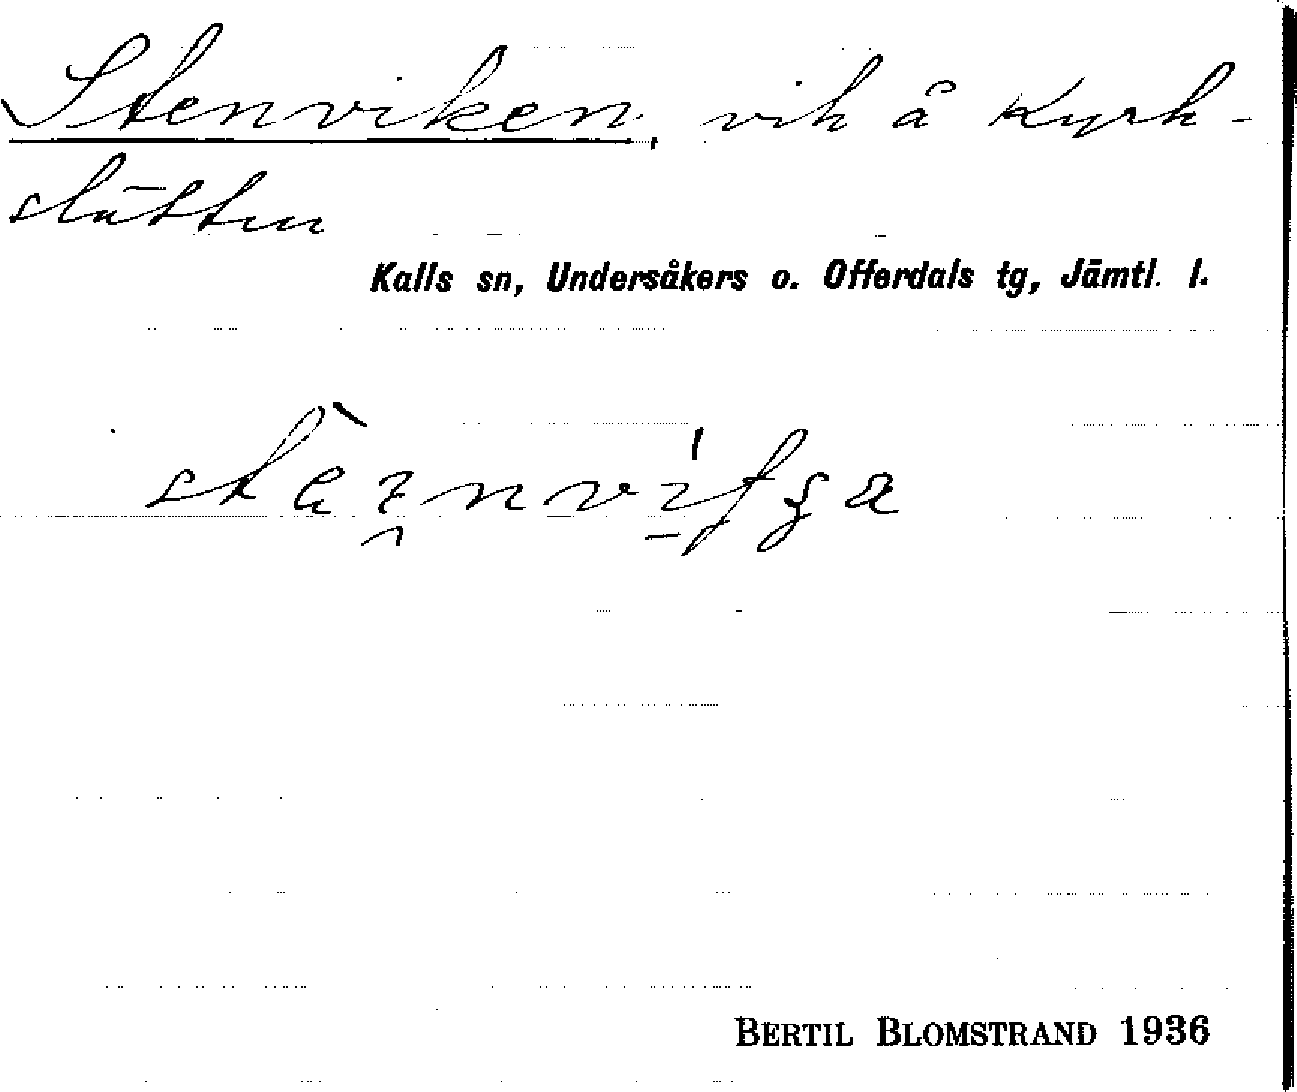 Stenviken, vik å Kyrk-
slåtten
Kalls sn, Undersåkers o. Offerdals tg, Jämtl. l.
BERTIL BLOMSTRAND 1936